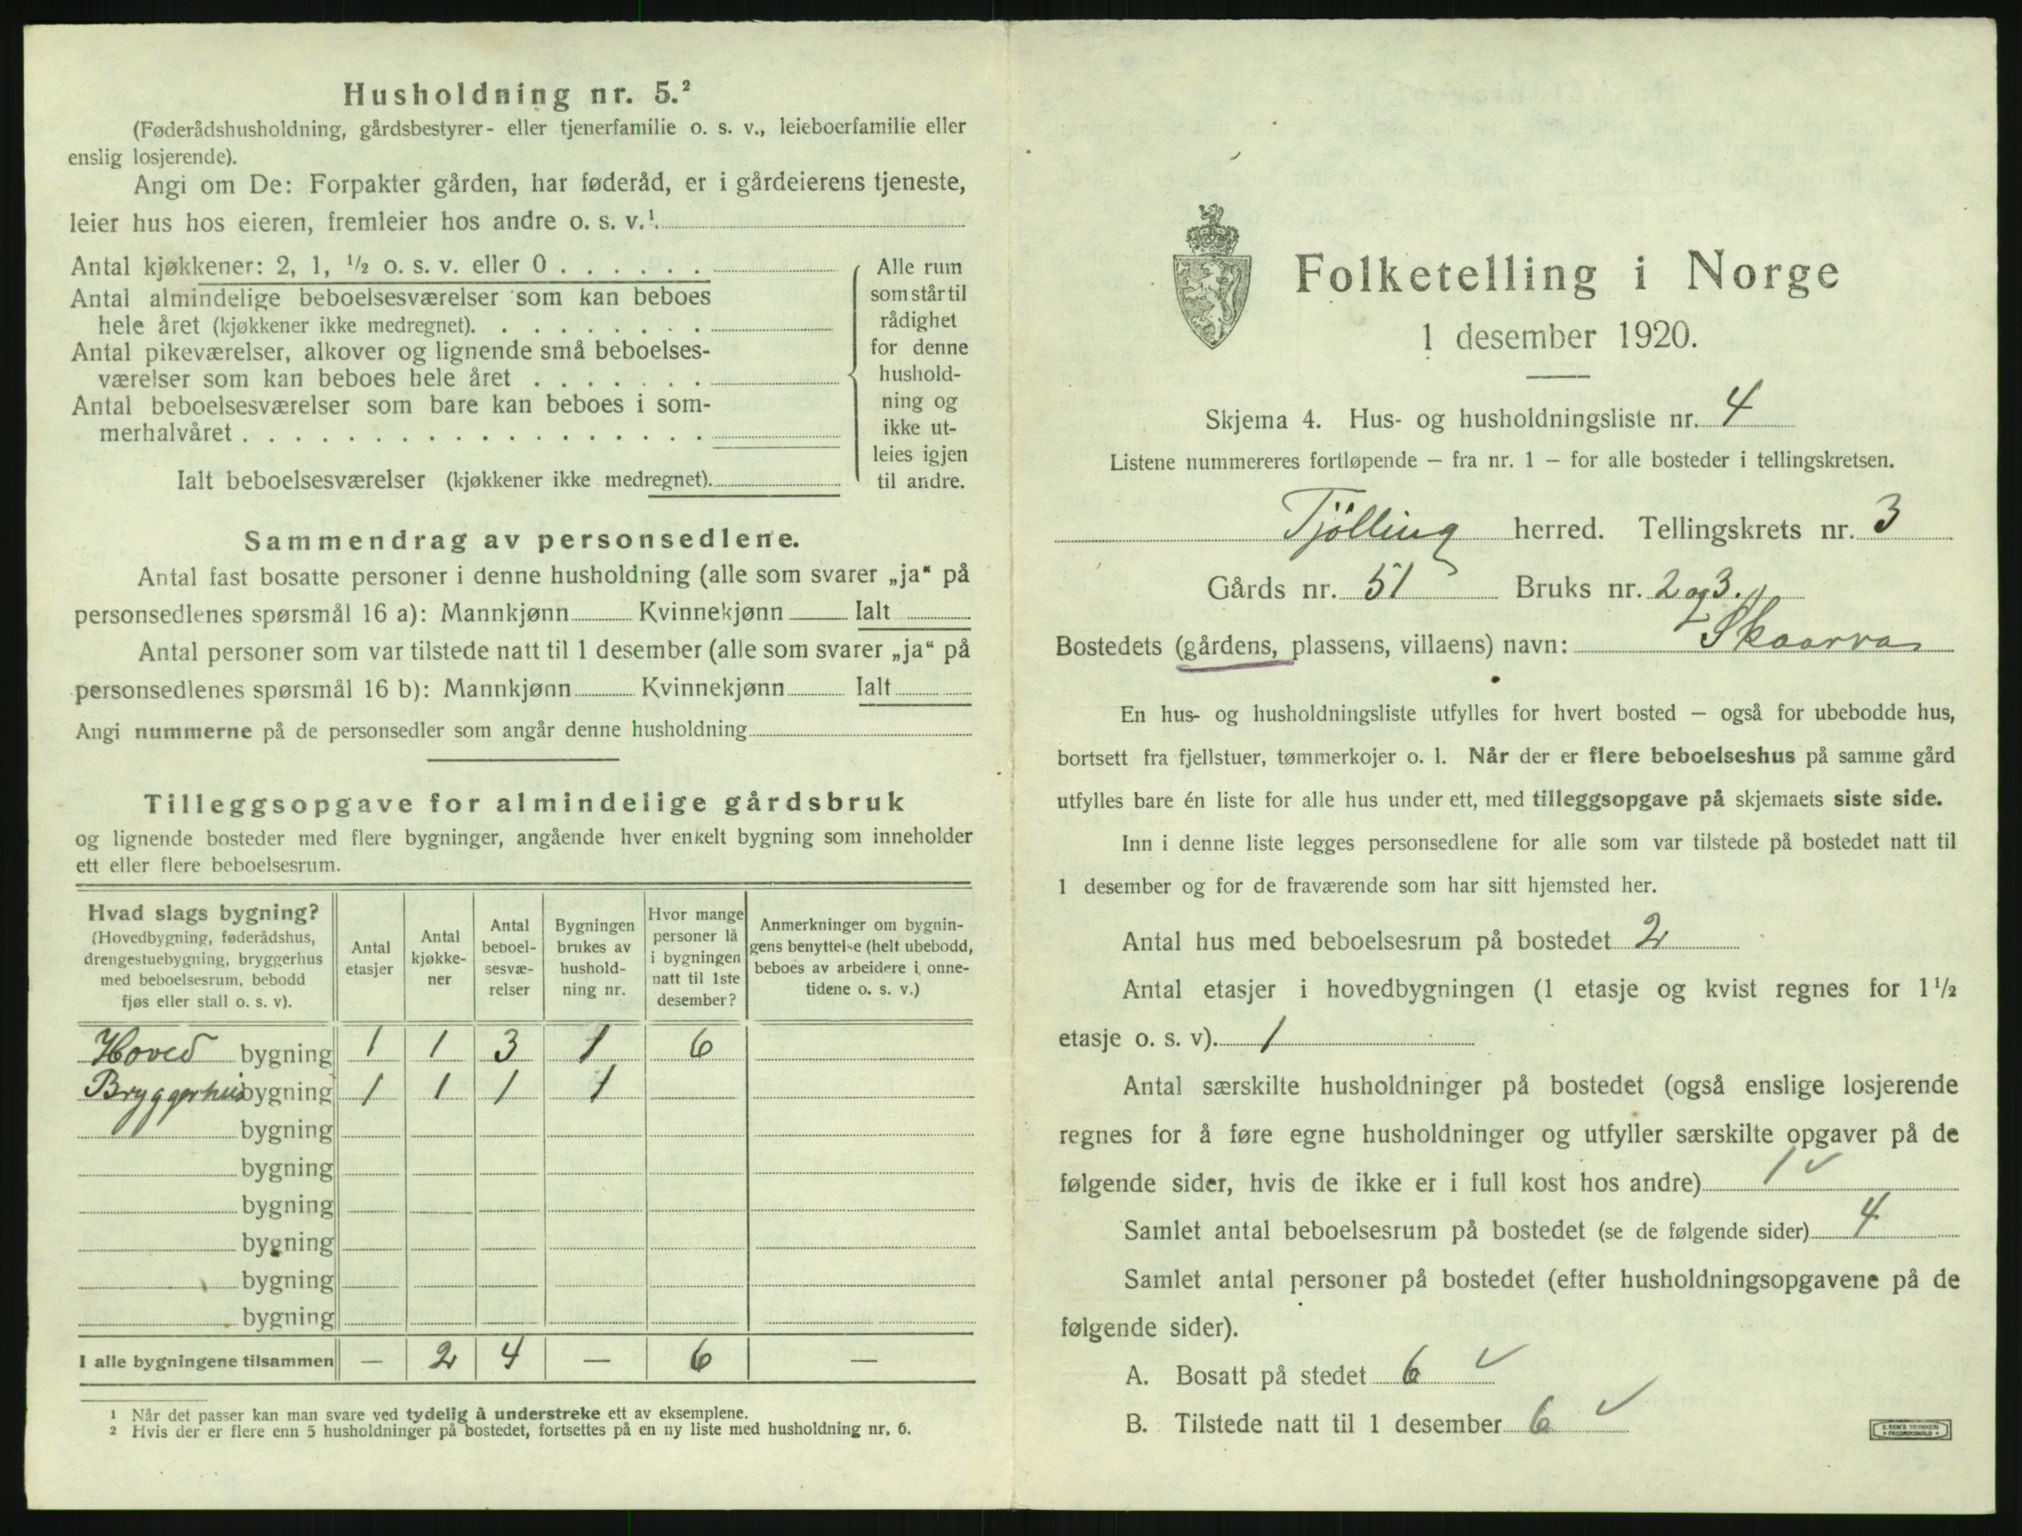 Husholdning nr. 5.²
(Føderådshusholdning, gårdsbestyrer- eller tjenerfamilie o. s. v., leieboerfamilie eller
enslig losjerende).
Angi om De: Forpakter gården, har føderåd, er i gårdeierens tjeneste,
leier hus hos eieren, fremleier hos andre o. s. v.¹.
Antal kjøkkener: 2, 1, ½ o. s. v. eller 0 . . . . . .
Antal almindelige beboelsesværelser som kan beboes
hele året (kjøkkener ikke medregnet). . . . . . . . .
Antal pikeværelser, alkover og lignende små beboelses-
værelser som kan beboes hele året . . . . . . .
Antal beboelsesværelser som bare kan beboes i som-
merhalvåret . . . . . . . . . . . . . . . . . .
Ialt beboelsesværelser (kjøkkener ikke medregnet).
Alle rum
som står til
rådighet
for denne
hushold-
ning og
ikke ut-
leies igjen
til andre.
Sammendrag av personsedlene.
Antal fast bosatte personer i denne husholdning (alle som svarer „ja“ på
personsedlenes spørsmål 16 a): Mannkjønn Kvinnekjønn Ialt
Antal personer som var tilstede natt til 1 desember (alle som svarer „ja“ på
personsedlenes spørsmål 16 b): Mannkjønn Kvinnekjønn Ialt
Angi nummerne på de personsedler som angår denne husholdning
Tilleggsopgave for almindelige gårdsbruk
og lignende bosteder med flere bygninger, angående hver enkelt bygning som inneholder
ett eller flere beboelsesrum.
Hvad slags bygning?
(Hovedbygning, føderådshus,
drengestuebygning, bryggerhus
med beboelsesrum, bebodd
fjøs eller stall o. s. v).
Antal
etasjer
Antal
kjøkke-
ner
Antal
beboel-
sesvæ-
relser
Bygningen
brukes av
hushold-
ning nr.
Hvor mange
personer lå
i bygningen
natt til 1ste
desember?
Anmerkninger om bygnin-
gens benyttelse (helt ubebodd,
beboes av arbeidere i onne-
tidene o. s. v.)
Hoved bygning 1 1 3 1 6
Bryggerhus bygning 1 1 1 1
bygning
bygning
bygning
bygning
bygning
bygning
I alle bygningene tilsammen — 2 4 — 6 —
¹ Når det passer kan man svare ved tydelig å understreke ett av eksemplene.
² Hvis der er flere enn 5 husholdninger på bostedet, fortsettes på en ny liste med husholdning nr, 6.
Folketelling i Norge
1 desember 1920.
Skjema 4. Hus- og husholdningsliste nr. 4
Listene nummereres fortløpende — fra nr. 1 — for alle bosteder i tellingskretsen.
Tjølling herred. Tellingskrets nr. 3
Gårds nr. 51 Bruks nr. 2 og 3.
Bostedets (gårdens, plassens, villaens) navn: Skaarva
En hus- og husholdningsliste utfylles for hvert bosted — også for ubebodde hus,
bortsett fra fjellstuer, tømmerkojer o. l. Når der er flere beboelseshus på samme gård
utfylles bare én liste for alle hus under ett, med tilleggsopgave på skjemaets siste side.
Inn i denne liste legges personsedlene for alle som var tilstede på bostedet natt til
1 desember og for de fraværende som har sitt hjemsted her.
Antal hus med beboelsesrum på bostedet 2
Antal etasjer i hovedbygningen (1 etasje og kvist regnes for 1½
etasje o. s. v). 1
Antal særskilte husholdninger på bostedet (også enslige losjerende
regnes for å føre egne husholdninger og utfyller særskilte opgaver på de
følgende sider, hvis de ikke er i full kost hos andre) 1 ✓
Samlet antal beboelsesrum på bostedet (se de følgende sider) 4
Samlet antal personer på bostedet (efter husholdningsopgavene på de
følgende sider).
A. Bosatt på stedet 6 ✓
B. Tilstede natt til 1 desember 6 ✓